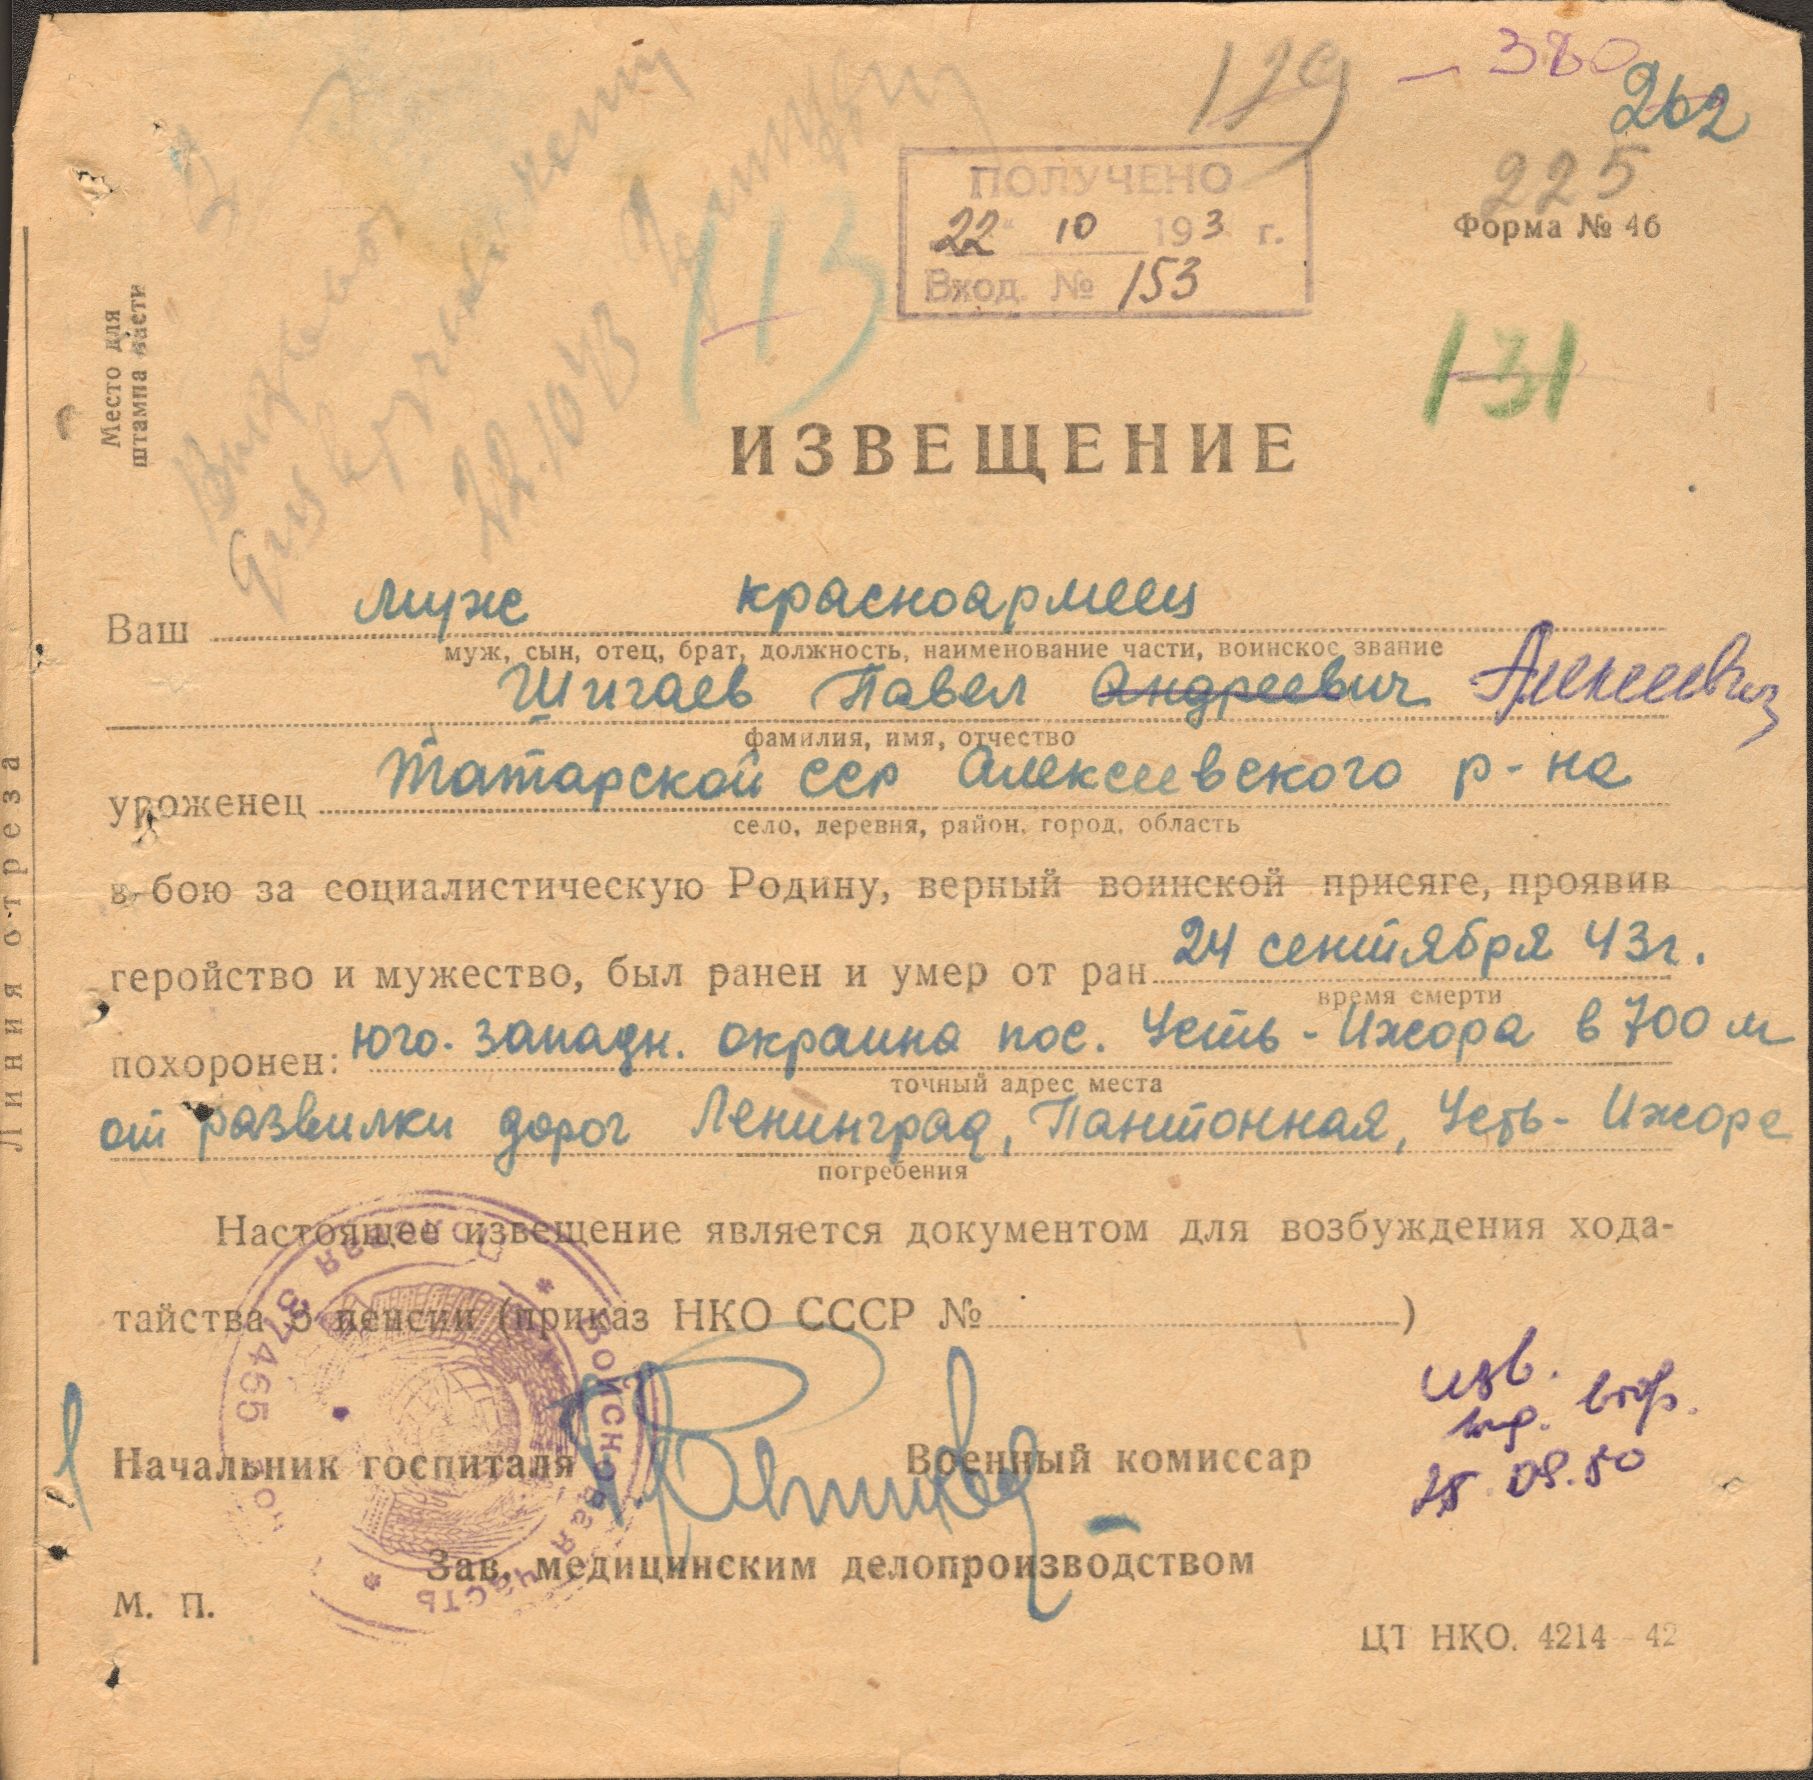 129 - 380
262
225
ПОЛУЧЕНО
22 " 10 193 г.
Вход. № 153
Форма № 46
Место для
штампа части
113
131
22.10 43
ИЗВЕЩЕНИЕ
Ваш муж красноармеец
муж, сын, отец, брат, должность, наименование части, воинское звание
Шигаев Павел Андреевич Алексеевич
фамилия, имя, отчество
уроженец Татарской сср Алексеевского р-на
село, деревня, район, город, область
в бою за социалистическую Родину, верный воинской присяге, проявив
геройство и мужество, был ранен и умер от ран 24 сентября 43г.
время смерти
похоронен: юго-западн. окраина пос. Усть-Ижора в 700 м
точный адрес места
от развилки дорог Ленинград, Пантонная, Усть-Ижора
погребения
Линия отреза
Настоящее извещение является документом для возбуждения хода-
тайства о пенсии (приказ НКО СССР № )
Войсковая часть Полевая почта 37465
изв.
втор.
25.09.50
Начальник госпиталя Военный комиссар
Зав. медицинским делопроизводством
М. П.
ЦТ НКО. 4214-42